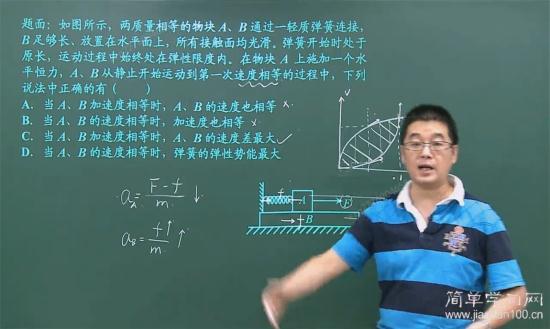 题面：如图所示，两质量相等的物块 A、B 通过一轻质弹簧连接，
B 足够长、放置在水平面上，所有接触面均光滑。弹簧开始时处于
原长，运动过程中始终处在弹性限度内。在物块 A 上施加一个水
平恒力，A、B 从静止开始运动到第一次速度相等的过程中，下列
说法中正确的有（ ）
A．当 A、B 加速度相等时，A、B 的速度也相等 ×
B．当 A、B 的速度相等时，加速度也相等 ×
C．当 A、B 加速度相等时，A、B 的速度差最大 ✓
D．当 A、B 的速度相等时，弹簧的弹性势能最大
v
a_A = F-f / m ↓
f A F
B
a_B = f↑ / m ↑
简单学习网
www.jiandan100.cn